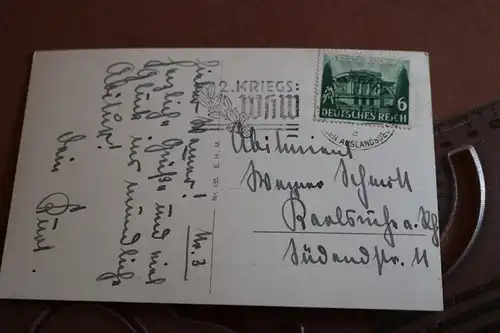 Lieber Werner!
Herzliche Grüße und viel
Glück zur mündlich
Abitur!
Dein Kurt.
Nr. 3
Nr. 1185 E. H. M.
2. KRIEGS:
WHW
6
DEUTSCHES REICH
Abiturient
Werner Schmitt
Karlsruhe a. Rh
Südendstr. 11